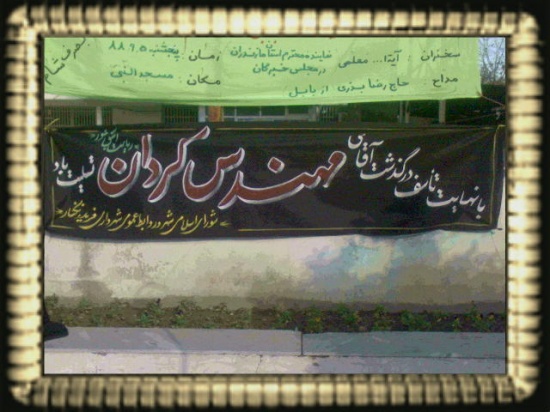 سخنران : آیت ا... معلمی نماینده محترم استان مازندران در مجلس خبرگان زمان : پنجشنبه ۸۸.۹.۵
مداح : حاج رضا بذری از بابل مکان : مسجد النبی
صرف شام
با نهایت تأسف درگذشت آقای
مهندس کردان
تسلیت باد
شورای اسلامی شهر و روابط عمومی شهرداری فریدونکنار